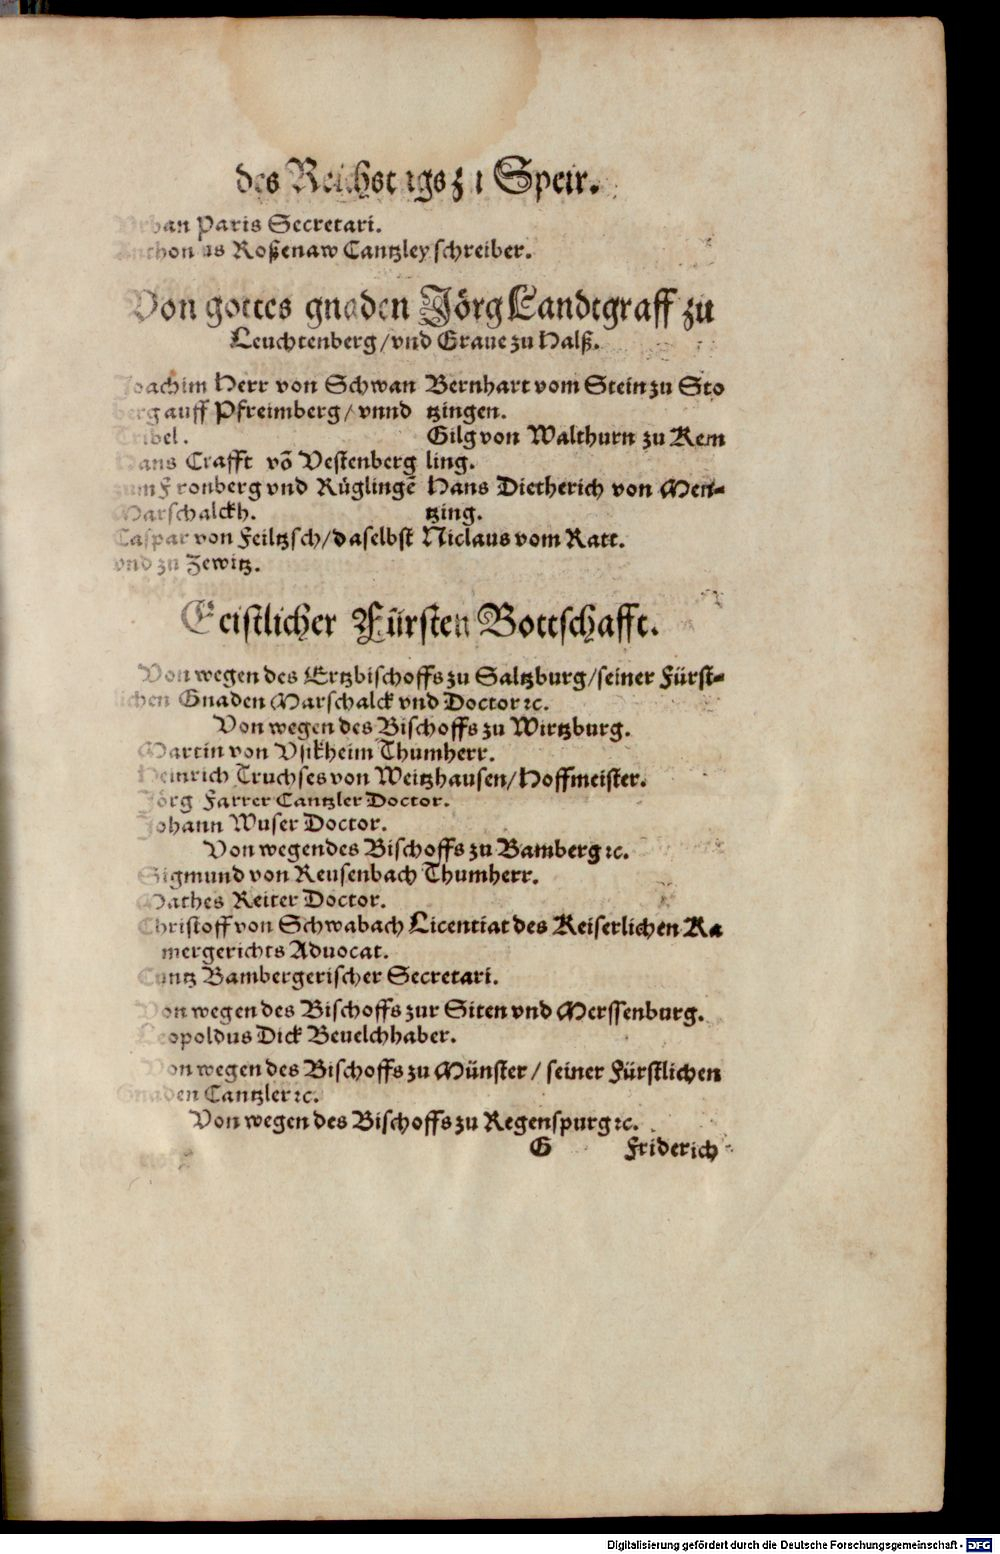 des Reichstags zu Speir.
Vrban Paris Secretari.
Anthonius Roßenaw Cantzley schreiber.
Von gottes gnaden Jörg Landtgraff zu
Leuchtenberg / vnd Graue zu Halß.
Joachim Herr von Schwan
berg auff Pfreimberg / vnnd
Tribel.
Hans Crafft vō Vestenberg
zum Fronberg vnd Rüglingē
Marschalckh.
Caspar von Feiltzsch / daselbst
vnd zu Zewitz.
Bernhart vom Stein zu Sto
tzingen.
Gilg von Walthurn zu Rem
ling.
Hans Dietherich von Men-
tzing.
Niclaus vom Ratt.
Geistlicher Fürsten Bottschafft.
Von wegen des Ertzbischoffs zu Saltzburg / seiner Fürst-
lichen Gnaden Marschalck vnd Doctor ꝛc.
Von wegen des Bischoffs zu Wirtzburg.
Martin von Vsikheim Thumherr.
Heinrich Truchses von Weitzhausen / Hoffmeister.
Jörg Farrer Cantzler Doctor.
Johann Wuser Doctor.
Von wegen des Bischoffs zu Bamberg ꝛc.
Sigmund von Reusenbach Thumherr.
Mathes Reiter Doctor.
Christoff von Schwabach Licentiat des Keiserlichen Ka
mergerichts Aduocat.
Cuntz Bambergerischer Secretari.
Von wegen des Bischoffs zur Siten vnd Merssenburg.
Leopoldus Dick Beuelchhaber.
Von wegen des Bischoffs zu Münster / seiner Fürstlichen
Gnaden Cantzler ꝛc.
Von wegen des Bischoffs zu Regenspurg ꝛc.
G Friderich
Digitalisierung gefördert durch die Deutsche Forschungsgemeinschaft - DFG